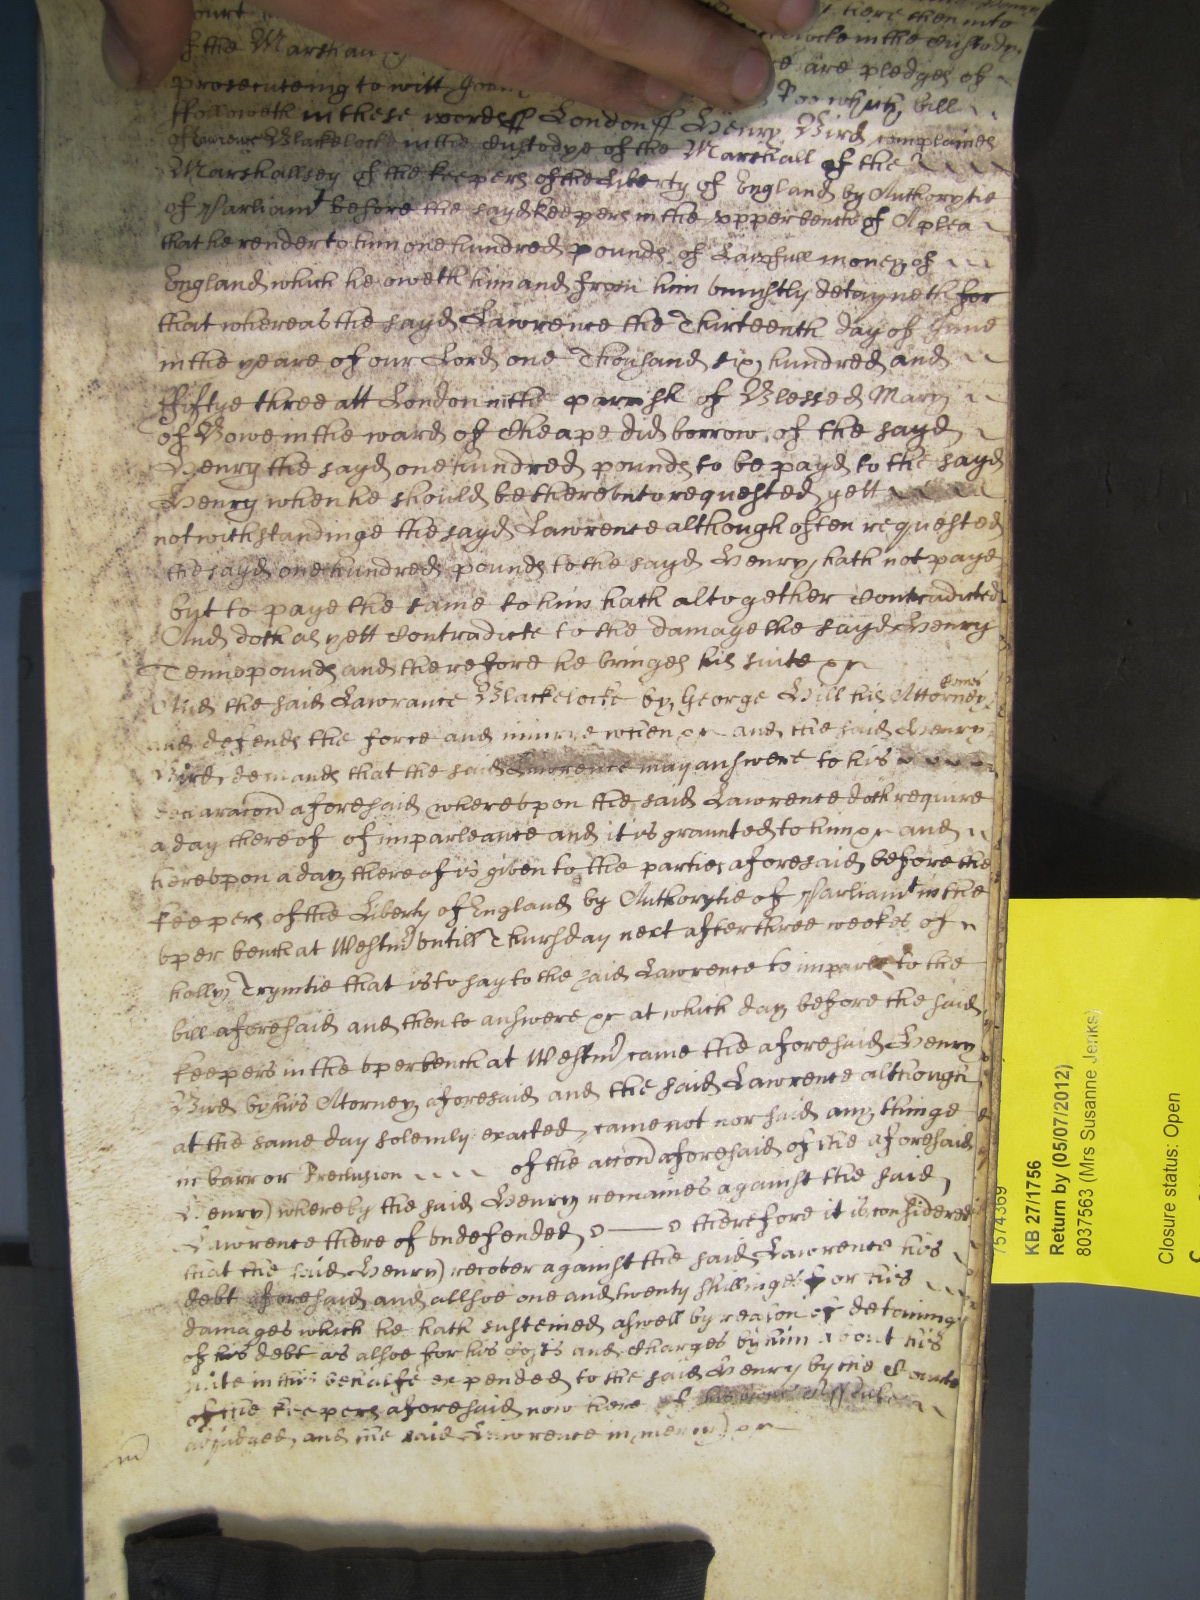 Court
of the Marshall
prosecuteing to witt John are pledges of
ffolloweth in these words ff London ff Henry Bird complaines
of Lawrence Blackelocke in the Custodye of the Marshall of the
Marshallsey of the keepers of the Liberty of England by Authorytie
of Parliamt before the sayd keepers in the vpper bench of A plea
that he render to him one hundred pounds of Lawfull money of
England which he oweth him and from him vniustly detayneth for
that whereas the sayd Lawrence the Thirteenth day of June
in the yeare of our Lord one Thousand six hundred and
ffiftye three att London in the parrish of Blessed Mary
of Bowe in the ward of Cheape did borrow of the sayd
Henry the sayd one hundred pounds to be payd to the sayd
Henry when he should be therevnto requested yett
notwithstandinge the sayd Lawrence although often requested
the sayd one hundred pounds to the sayd Henry hath not paye
but to paye the same to him hath altogether Contradicted
And doth as yett Contradicte to the damage the sayd Henry
Tenne pounds and therefore he bringes his suite &c
And the said Lawrance Blackelocke by George Hill his Attorney Comes
and defends the force and iniurie when &c and the said Henry
Bird demands that the said Lawrence may answere to his
declaracon aforesaid wherevpon the said Lawrence doth require
a day thereof of imparleance and it is graunted to him &c and
therevpon a day thereof is given to the parties aforesaid before the
keepers of the Liberty of England by Authorytie of Parliamt in the
vper bench at Westmr vntill Thursday next after three weekes of
holly Trynitie that is to say to the said Lawrence to imparle to the
bill aforesaid and then to answere &c at which day before the said
keepers in the vper bench at Westmr came the aforesaid Henry
Bird by his Atorney aforesaid and the said Lawrence although
at the same day solemly exacted came not nor said any thinge
in barr or Preclusion of the accon aforesaid of the aforesaid
Henry whereby the said Henry remaines against the said
Lawrence thereof vndefended therefore it is considered
that the said Henry recover against the said Lawrence his
debt aforesaid and allsoe one and twenty shillinges for his
damages which he hath susteined aswell by reason of detaining
of his debt as alsoe for his Costs and Charges by him about his
suite in this behalfe expended to the said Henry by the Court
of the keepers aforesaid now here of his owne Assente
adjudged and the said Lawrence in mercy &c
m
7574369
KB 27/1756
Return by (05/07/2012)
8037563 (Mrs Susanne Jenks)
Closure status: Open